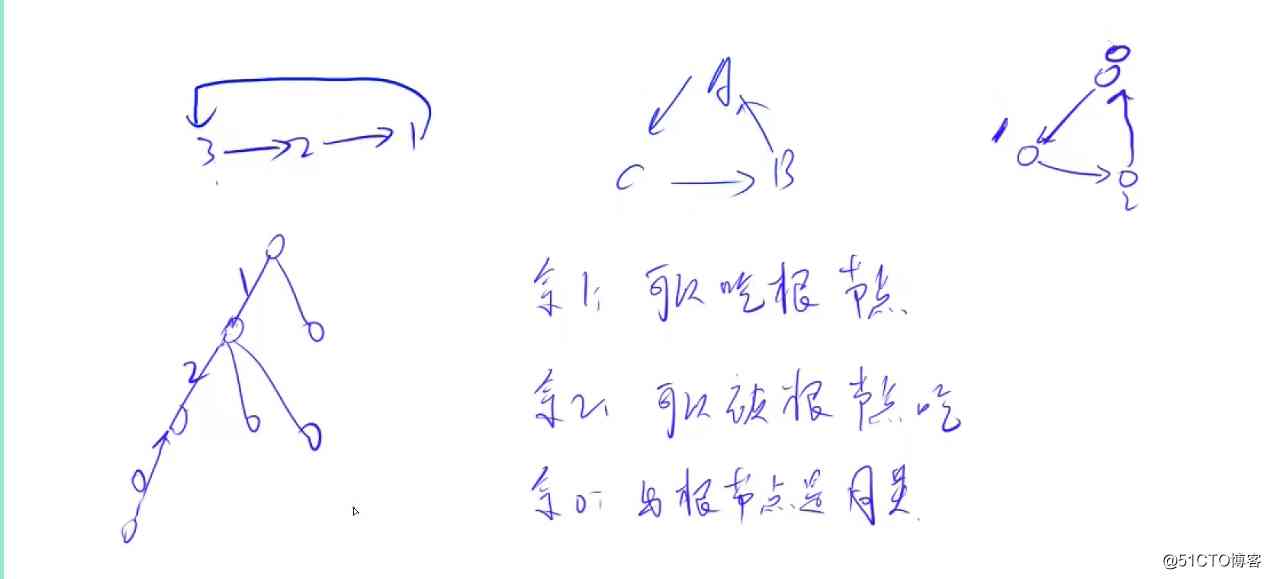 A
3 2 1
C B
1
2
1
2
0
余1: 可以吃根节点
余2: 可以被根节点吃
余0: 与根节点是同类
@51CTO博客